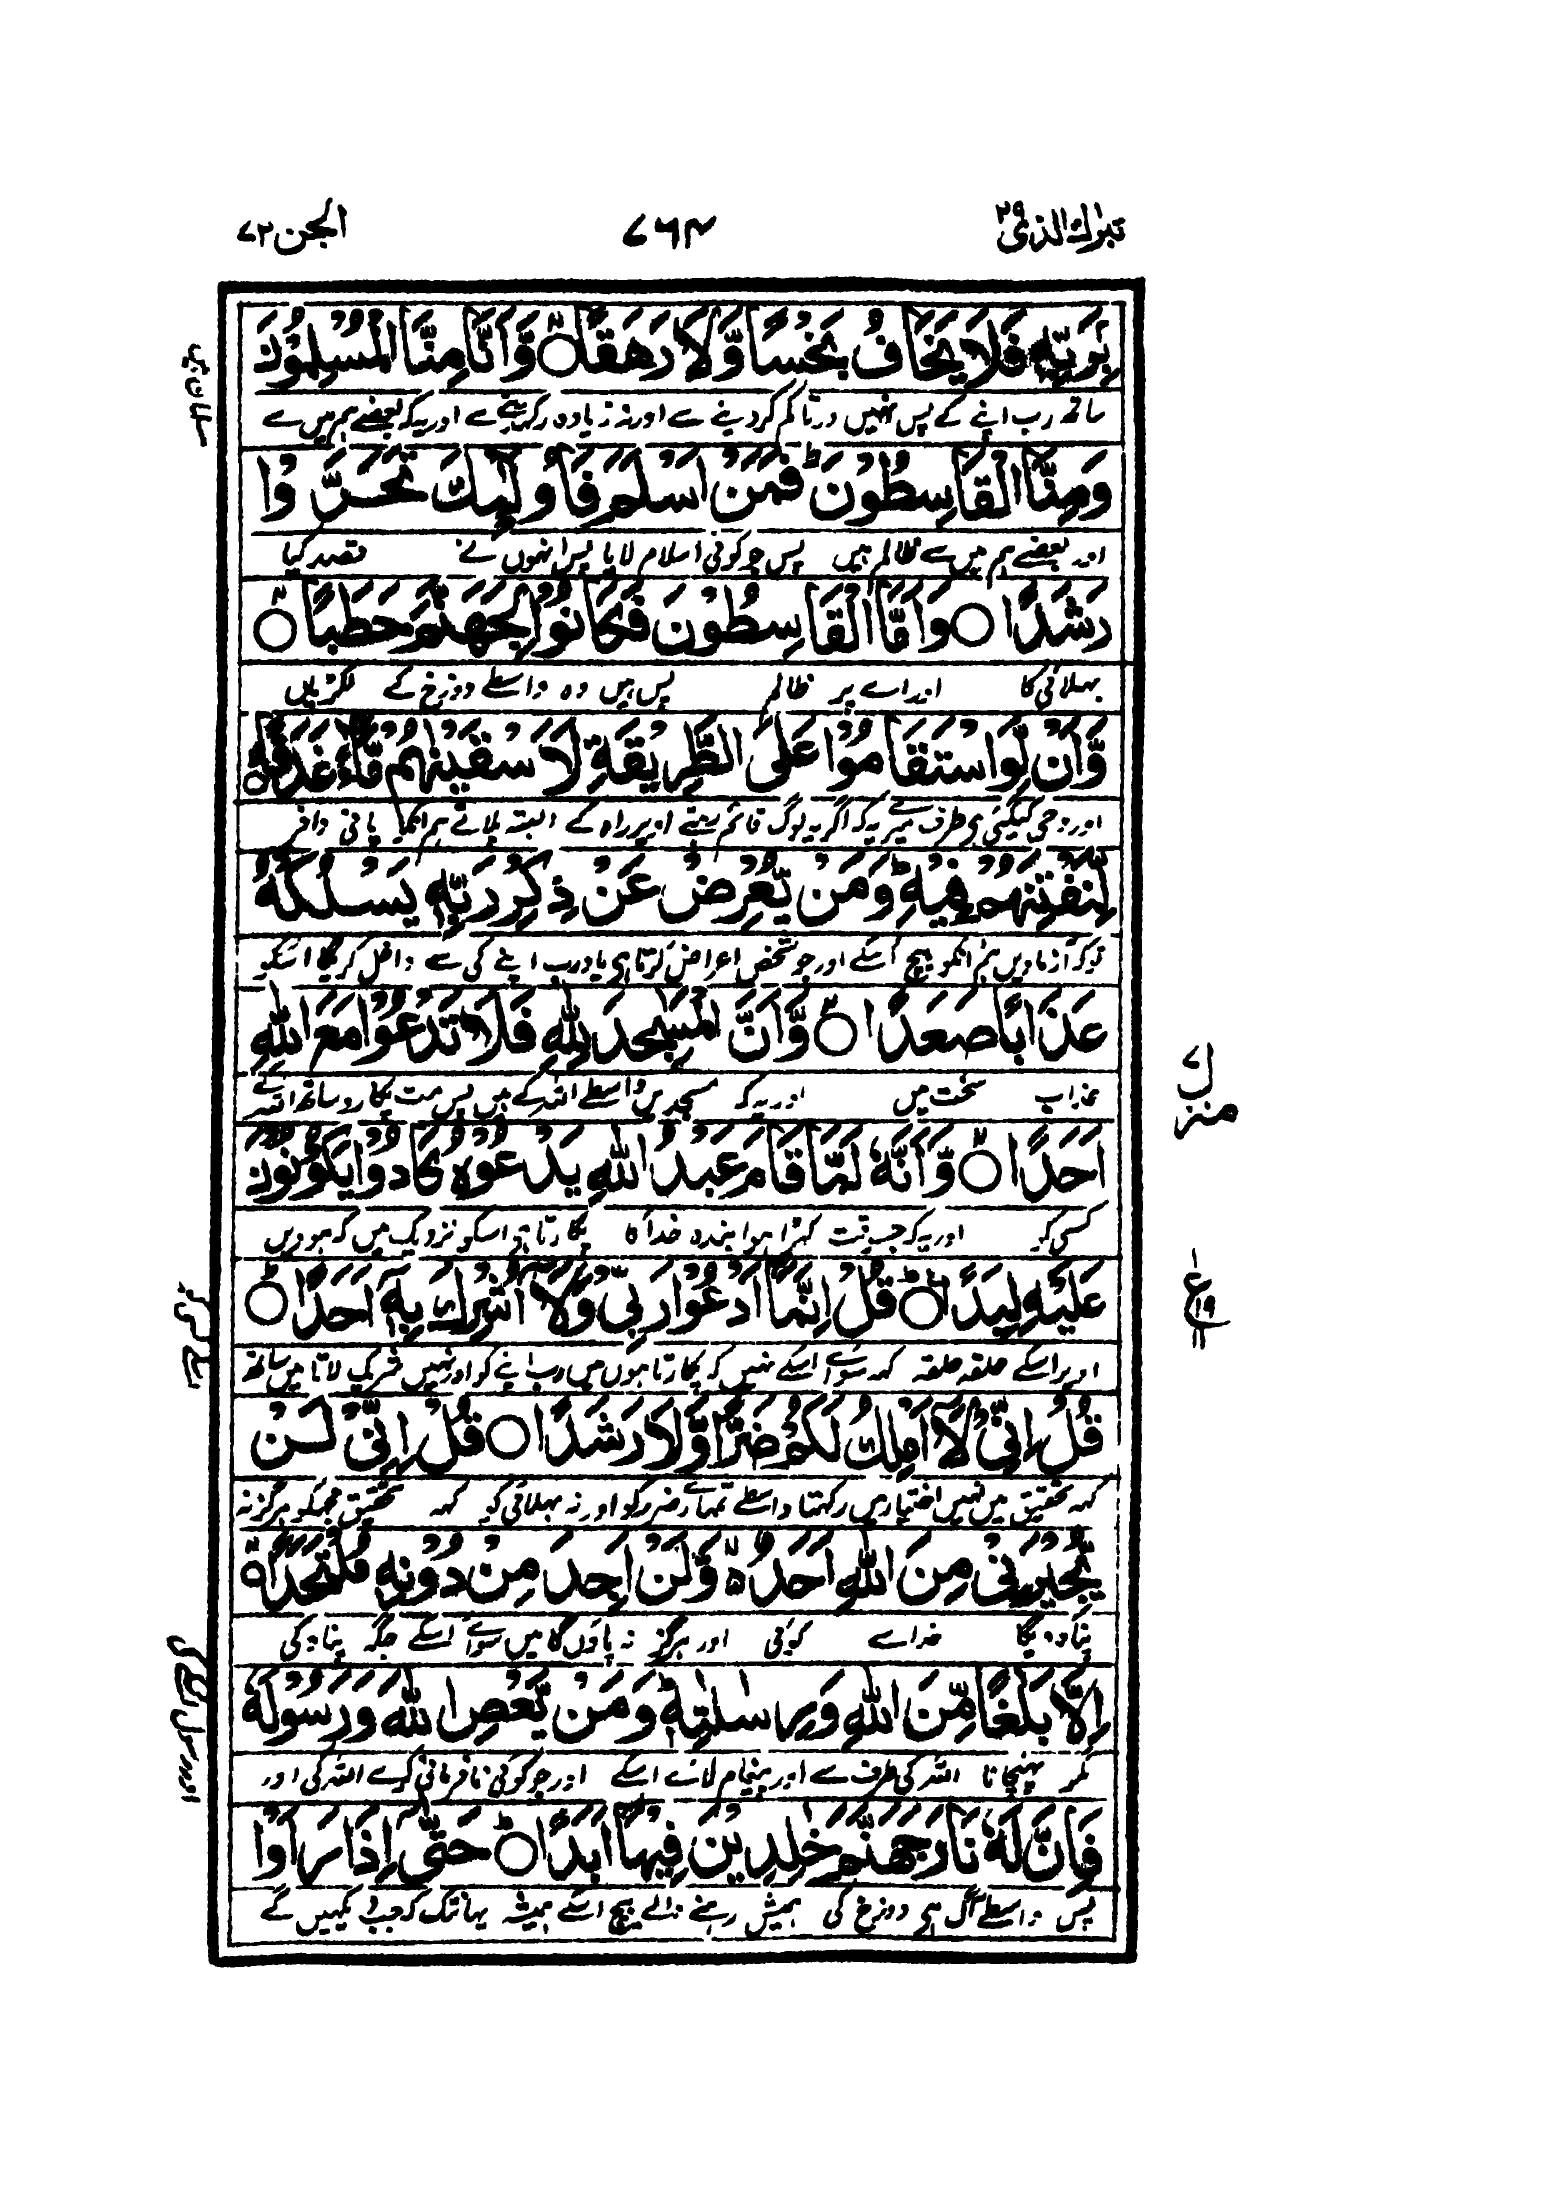 تبٰرك الذی ٢٩
٧٦٣
الجن ٧٢
بِرَبِّهٖ فَلَا يَخَافُ بَخْسًا وَّلَا رَهَقًا ۙ وَّاَنَّا مِنَّا الْمُسْلِمُوْنَ
ساتھ رب اپنے کے پس نہیں ڈرتا کم کر دینے سے اور نہ زیادہ رکہنے سے اور یہ کہ بعضے ہم میں سے
مسلمان ہیں
وَمِنَّا الْقَاسِطُوْنَ ؕ فَمَنْ اَسْلَمَ فَاُولٰٓئِكَ تَحَرَّوْا
اور بعضے ہم میں سے ظالم ہیں پس جو کوئی اسلام لایا پس انہوں نے قصد کیا
رَشَدًا ○ وَاَمَّا الْقَاسِطُوْنَ فَكَانُوْا لِجَهَنَّمَ حَطَبًا ۙ○
بھلائی کا اور اے پر ظالم پس ہیں وہ واسطے دوزخ کے لکڑیاں
وَّاَنْ لَّوِ اسْتَقَامُوْا عَلَى الطَّرِيْقَةِ لَاَسْقَيْنٰهُمْ مَّآءً غَدَقًا ۙ○
اور وحی کیگئی ہی طرف میرے یہ کہ اگر یہ لوگ قائم رہتے اوپر راہ کے البتہ پلاتے ہم انکو پانی وافر
لِّنَفْتِنَهُمْ فِيْهِ ؕ وَمَنْ يُّعْرِضْ عَنْ ذِكْرِ رَبِّهٖ يَسْلُكْهُ
توکہ آزماویں ہم انکو بیچ اسکے اور جو شخص اعراض کرتا ہی یاد رب اپنے کی سے داخل کریگا اسکو
عَذَابًا صَعَدًا ۙ○ وَّاَنَّ الْمَسٰجِدَ لِلّٰهِ فَلَا تَدْعُوْا مَعَ اللّٰهِ
عذاب سخت میں اور یہ کہ مسجدیں واسطے اللہ کے ہیں پس مت پکارو ساتھ اللہ کے
اَحَدًا ۙ○ وَّاَنَّهٗ لَمَّا قَامَ عَبْدُ اللّٰهِ يَدْعُوْهُ كَادُوْا يَكُوْنُوْنَ
کسی کو اور یہ کہ جب وقت کہڑا ہوا بندہ خدا کا پکارتا ہی اسکو نزدیک ہیں کہ ہوویں
عَلَيْهِ لِبَدًا ؕ○ قُلْ اِنَّمَآ اَدْعُوْا رَبِّيْ وَلَآ اُشْرِكُ بِهٖٓ اَحَدًا ؕ○
اوپر اسکے حلقہ حلقہ کہہ سوائے اسکے نہیں کہ پکارتا ہوں میں رب اپنے کو اور نہیں شریک لاتا میں ساتھ
اسکے کسی کو
قُلْ اِنِّيْ لَآ اَمْلِكُ لَكُمْ ضَرًّا وَّلَا رَشَدًا ○ قُلْ اِنِّيْ لَنْ
کہہ تحقیق میں نہیں اختیار میں رکہتا واسطے تمہارے ضرر کو اور نہ بھلائی کو کہہ تحقیق مجکو ہرگز نہ
يُّجِيْرَنِيْ مِنَ اللّٰهِ اَحَدٌ ۙ۬ وَّلَنْ اَجِدَ مِنْ دُوْنِهٖ مُلْتَحَدًا ۙ○
پناہ دیگا خدا سے کوئی اور ہرگز نہ پاؤں گا میں سوائے اسکے جگہ پناہ کی
اِلَّا بَلٰغًا مِّنَ اللّٰهِ وَرِسٰلٰتِهٖ ؕ وَمَنْ يَّعْصِ اللّٰهَ وَرَسُوْلَهٗ
مگر پہنچانا اللہ کی طرف سے اور پیغام لانے اسکے اور جو کوئی نافرمانی کرے اللہ کی اور
اور رسول اسکے کی
فَاِنَّ لَهٗ نَارَ جَهَنَّمَ خٰلِدِيْنَ فِيْهَآ اَبَدًا ؕ○ حَتّٰٓى اِذَا رَاَوْا
پس واسطے اسکے آگ ہی دوزخ کی ہمیش رہنے والے بیچ اسکے ہمیشہ یہانتک کہ جب دیکہیں گے
منزل ٧
ع
١٩
١١